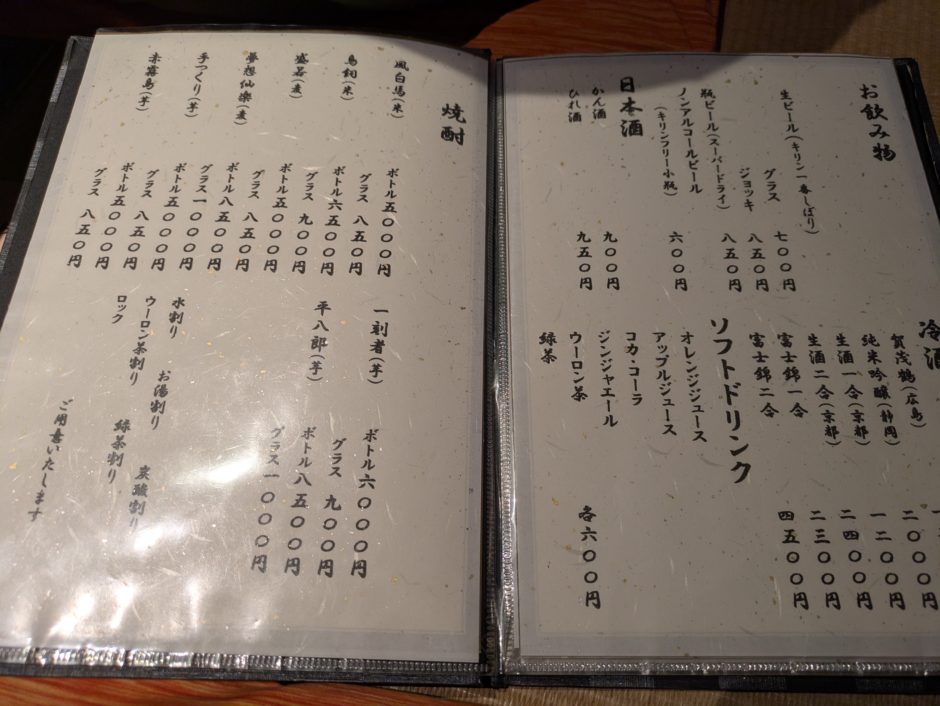 お飲み物
生ビール(キリン一番しぼり)
グラス 七〇〇円
ジョッキ 八五〇円
瓶ビール(スーパードライ) 八五〇円
ノンアルコールビール
(キリンフリー小瓶) 六〇〇円
日本酒
かん酒 九〇〇円
ひれ酒 九五〇円
冷酒
賀茂鶴(広島)
純米吟醸(静岡) 二〇〇〇円
生酒一合(京都) 一二〇〇円
生酒二合(京都) 二四〇〇円
富士錦一合 二三〇〇円
富士錦二合 四五〇〇円
ソフトドリンク
オレンジジュース
アップルジュース
コカ・コーラ
ジンジャエール
ウーロン茶 各六〇〇円
緑茶
焼酎
風白馬(米) ボトル五〇〇〇円
グラス 八五〇円
鳥飼(米) ボトル六五〇〇円
グラス 九〇〇円
盛若(麦) ボトル五〇〇〇円
グラス 八五〇円
夢想仙楽(麦) ボトル八五〇〇円
グラス一〇〇〇円
手つくり(芋) ボトル五〇〇〇円
グラス 八五〇円
赤霧島(芋) ボトル五〇〇〇円
グラス 八五〇円
一刻者(芋) ボトル六〇〇〇円
グラス 九〇〇円
平八郎(芋) ボトル八五〇〇円
グラス一〇〇〇円
水割り お湯割り 炭酸割り
ウーロン茶割り 緑茶割り
ロック
ご用意いたします